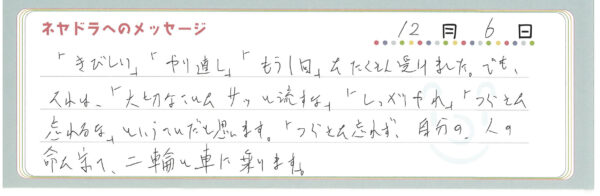 ネヤドラへのメッセージ
12月6日
「きびしい」「やり直し」「もう1回」をたくさん受けました。でも、
それは、「大切なことはサッと流すな」「しっかりやれ」「つらさを
忘れるな」ということだと思います。「つらさを忘れず、自分の、人の
命を守って、二輪と車に乗ります。